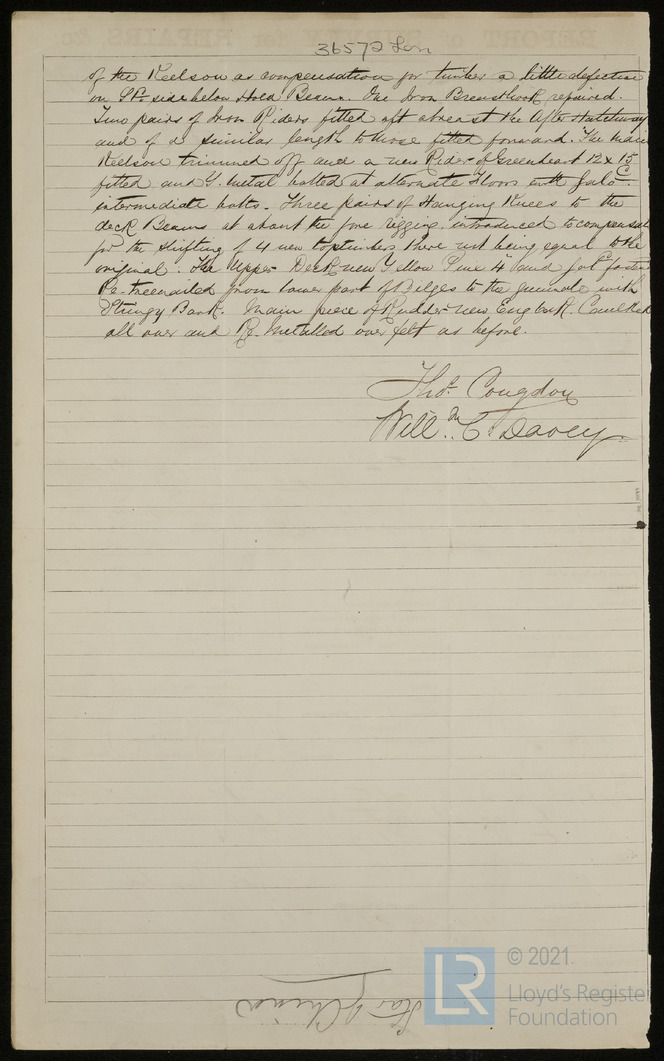 36572 Lon
of the Keelson as compensation for timber a little defective
on St. side below Hold Beam. One Iron Breasthook repaired.
Two pairs of Iron Riders fitted aft abreast the After Hatchway
and of a similar length to those fitted forward. The Main
Keelson trimmed off and a new Rider of Greenheart 12 x 15
fitted and Y. Metal bolted at alternate Floors with Galvc.
intermediate bolts. Three pairs of Hanging Knees to the
deck Beams at about the fore rigging introduced to compensate
for the shifting of 4 new toptimbers there not being equal to the
original. The Upper Deck new Yellow Pine 4" and fastd
Re-treenailed from lower part of Bilges to the gunwale with
Stringy Bark. Main piece of Rudder new Eng Oak. Caulked
all over and Re. Metalled over felt as before.
Thos. Congdon
Willm. C. Davey
Star of China
© 2021
LR
Lloyd's Register
Foundation